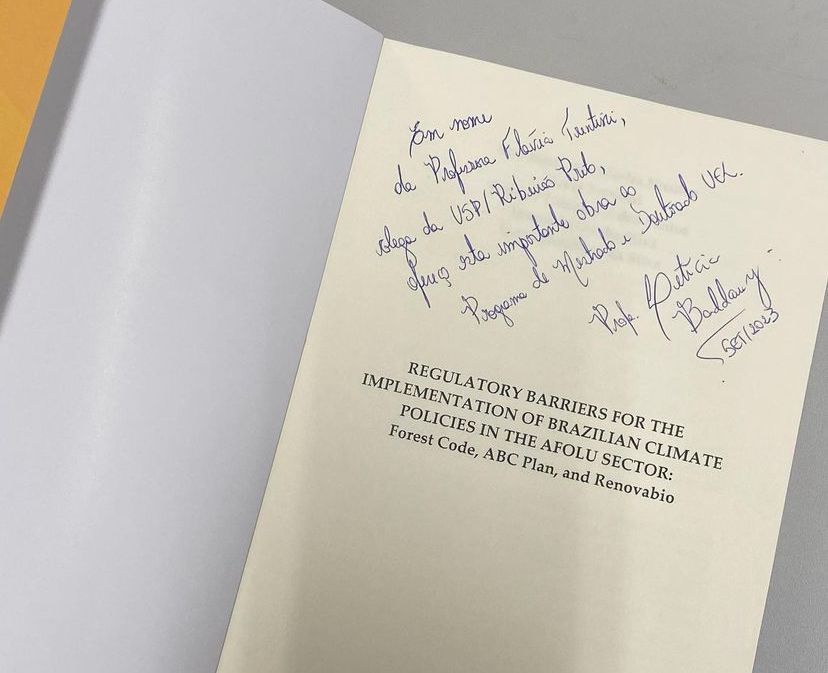 Em nome
da Professora Flávia Trentini,
colega da USP/Ribeirão Preto,
ofereço esta importante obra ao
Programa de Mestrado e Doutorado UEL.
Profa. Letícia
Baddauy
SET/2023
REGULATORY BARRIERS FOR THE
IMPLEMENTATION OF BRAZILIAN CLIMATE
POLICIES IN THE AFOLU SECTOR:
Forest Code, ABC Plan, and Renovabio